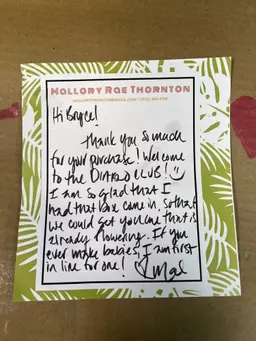 MALLORY RAE THORNTON
Hi Bryce!
Thank you so much
for your purchase! Welcome
to the DIABLO CLUB! :)
I am so glad that I
had that one come in, so that
we could get you one that is
already flowering. If you
ever make babies, I am first
in line for one! ♡ Mal